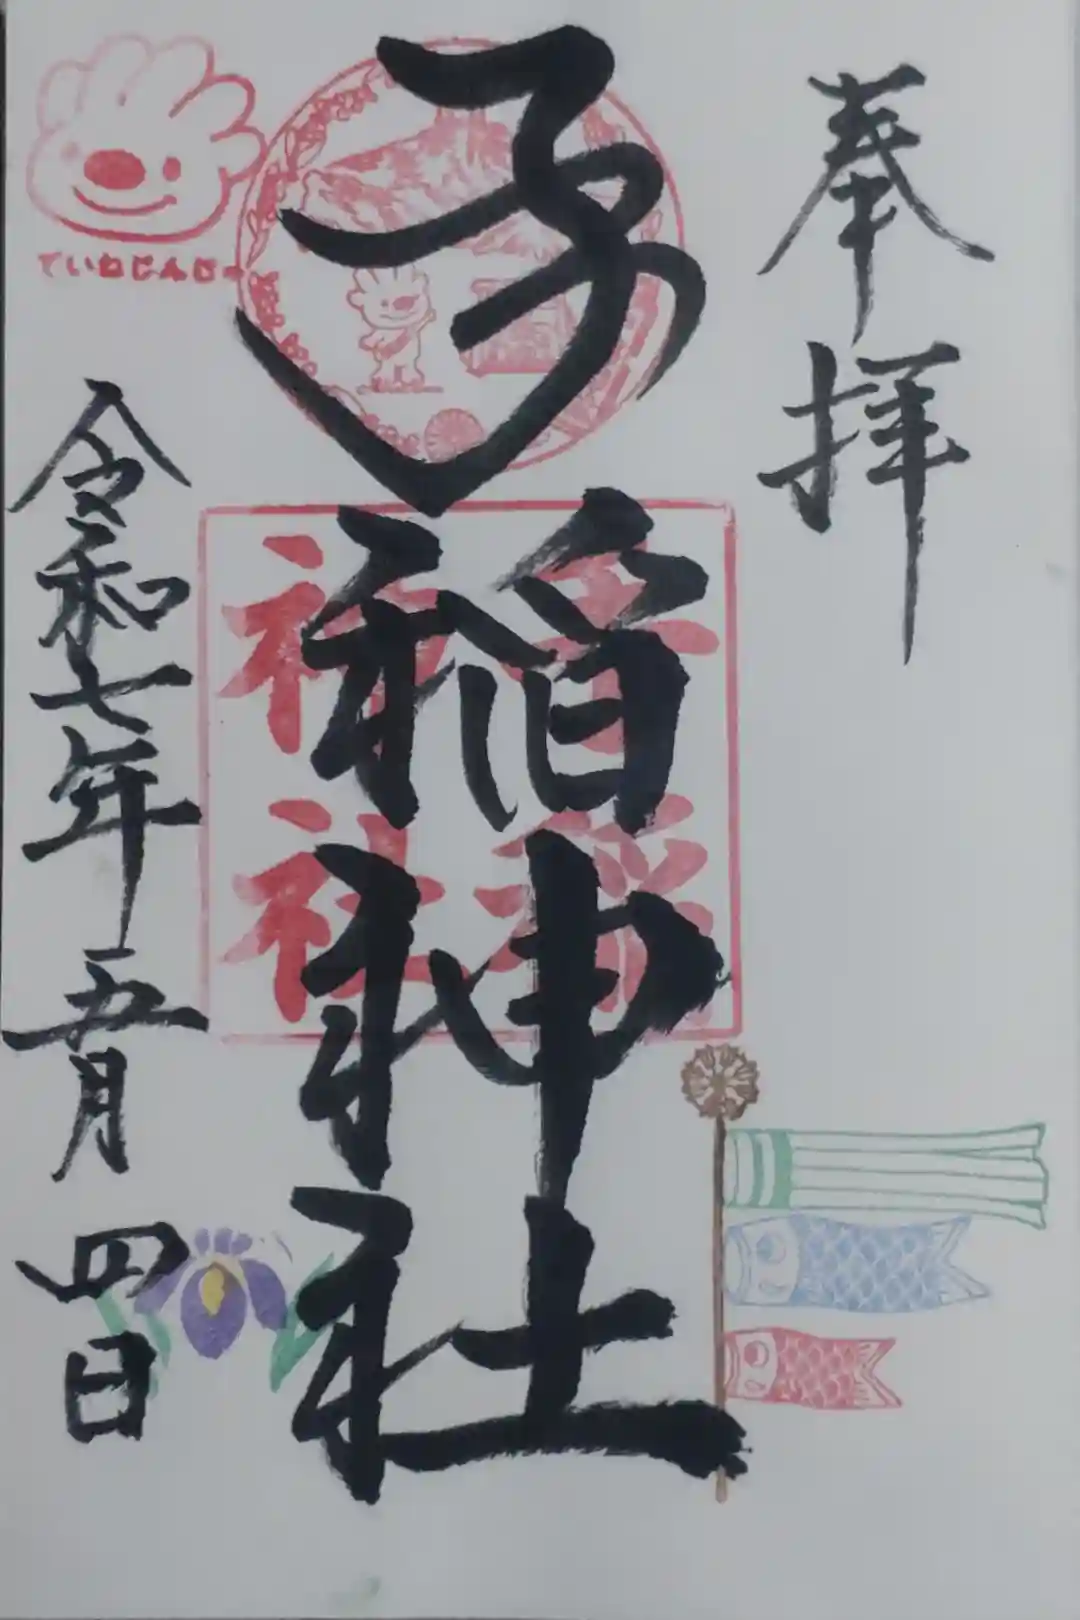 奉拝
手稲神社
手稲神社
ていねじんじゃ
令和七年五月四日